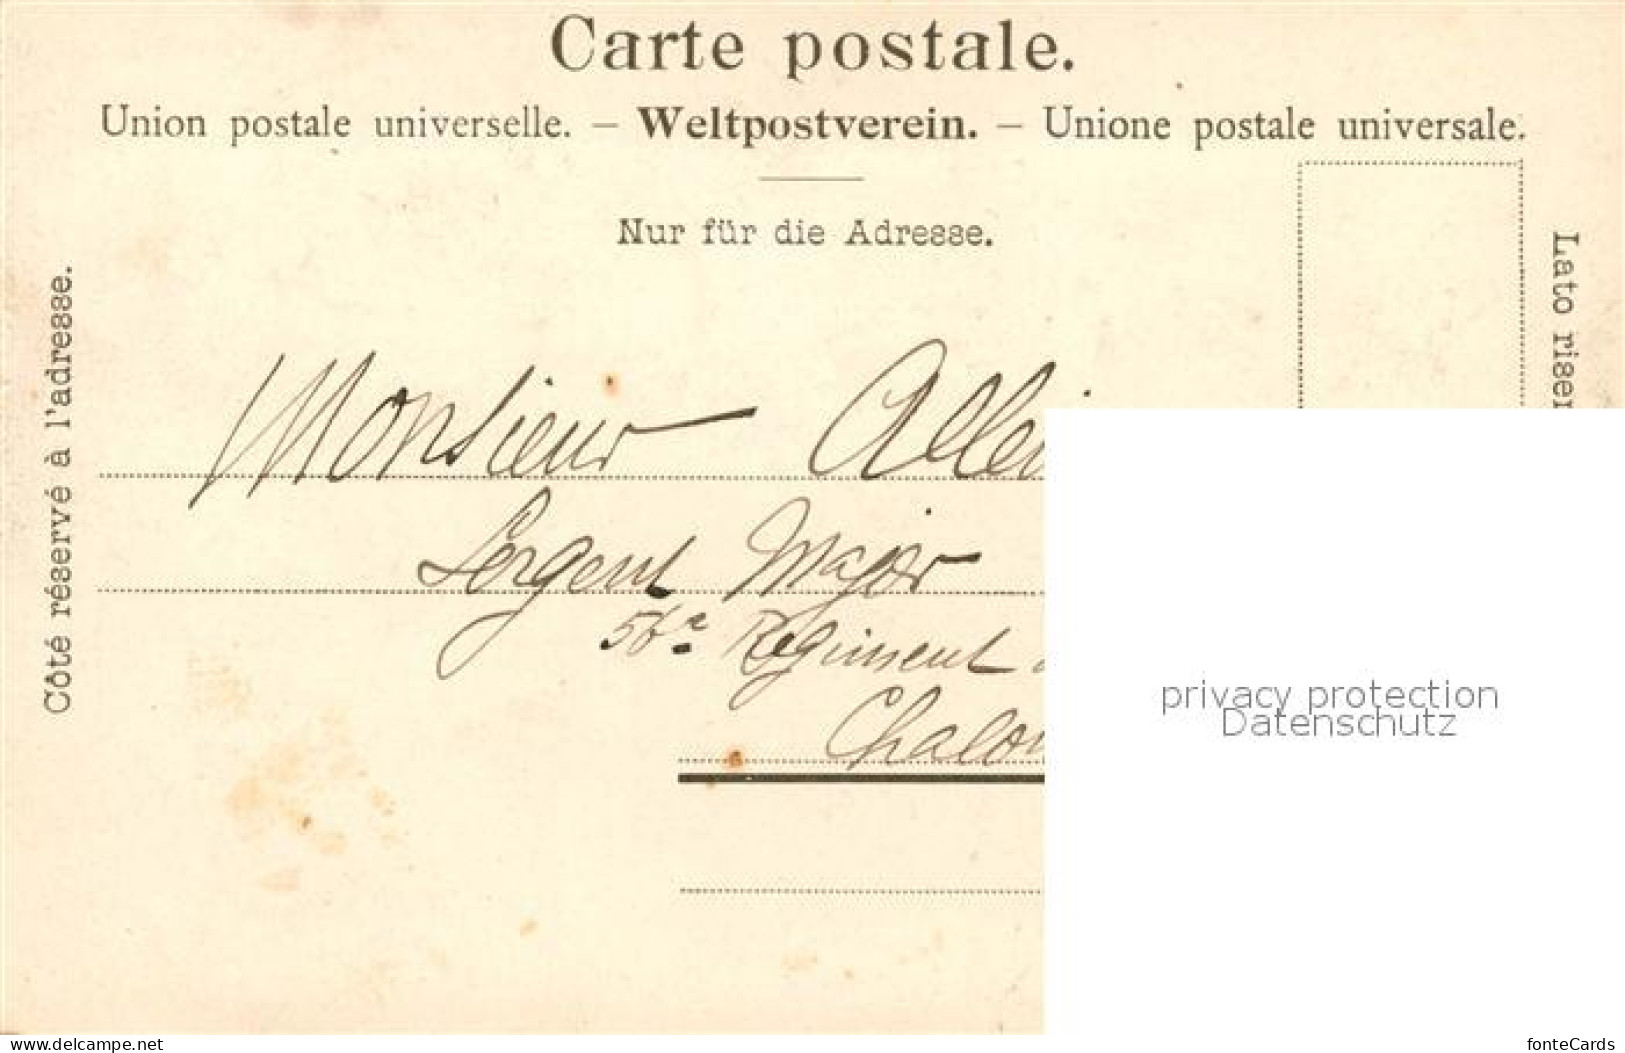 Carte postale.
Union postale universelle. – Weltpostverein. – Unione postale universale.
Nur für die Adresse.
Côté réservé à l'adresse.
Lato riser
Monsieur Allei
Sergent Major
56e Régiment
Chalon
privacy protection
Datenschutz
www.delcampe.net
fonteCards